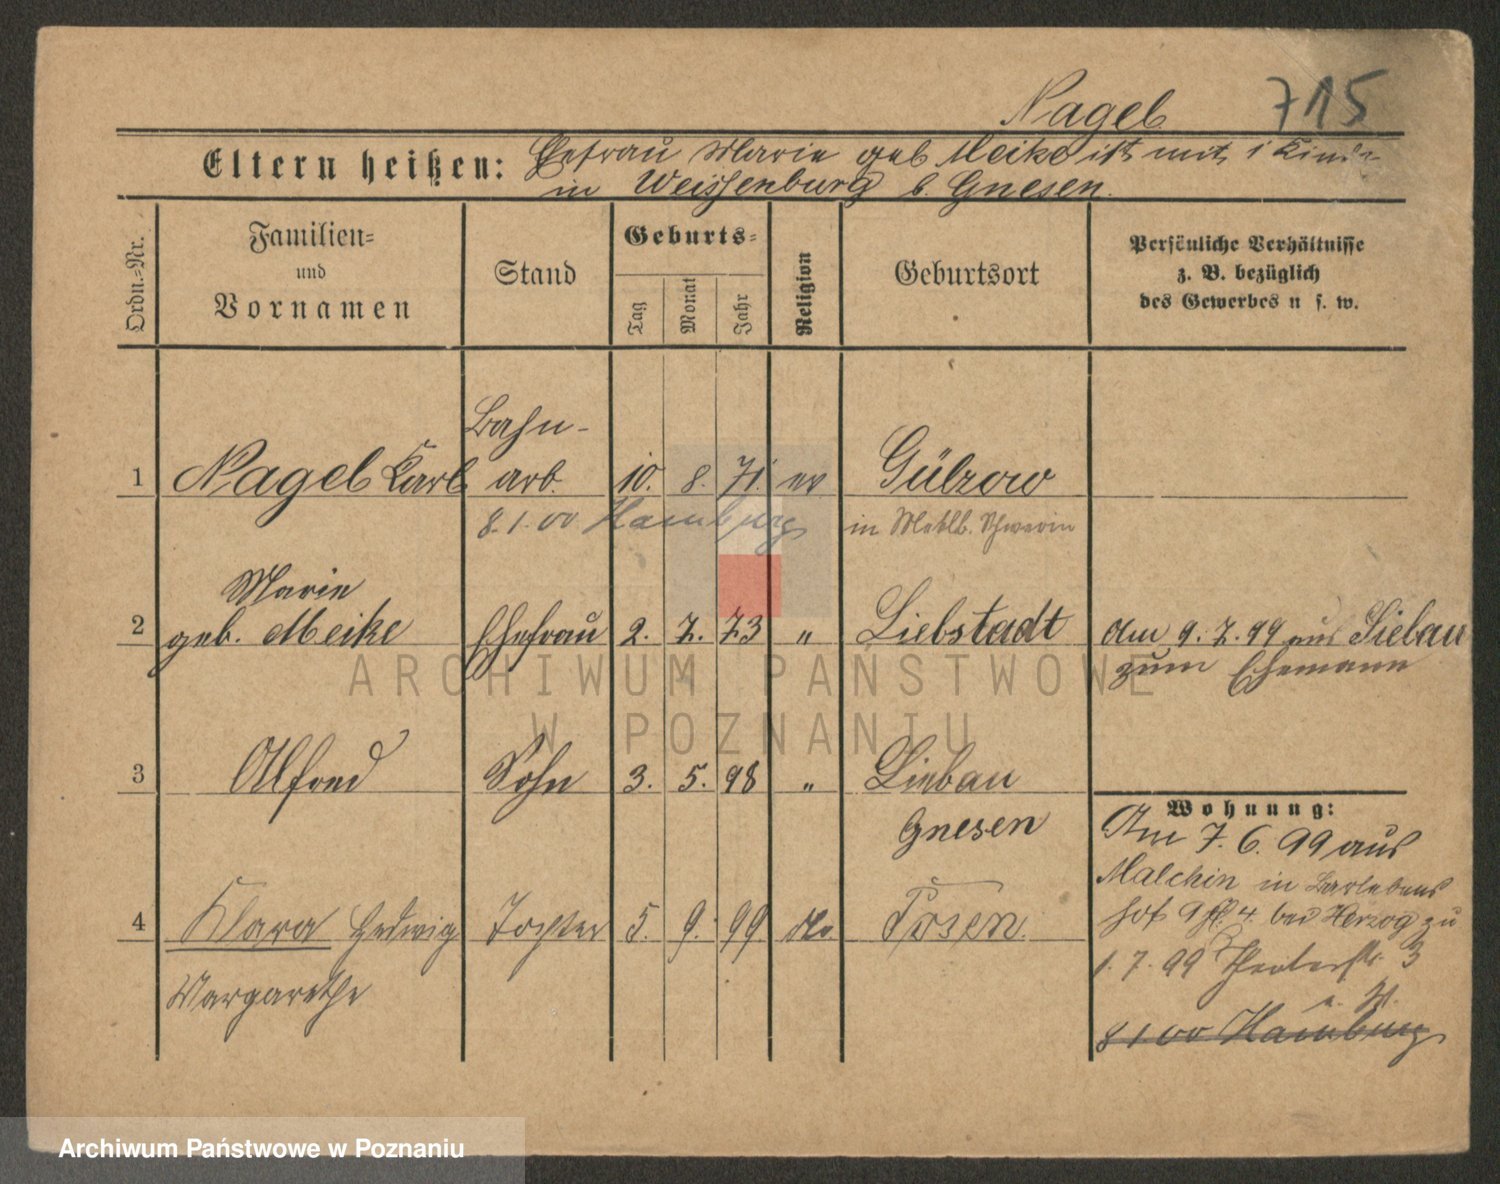 Nagel 715
Eltern heißen: Ehefrau Marie geb Meike ist mit 1 Kinde
in Weissenburg b. Gnesen.
Ordn.-Nr.
Familien-
und
Vornamen
Stand
Geburts-
Tag
Monat
Jahr
Religion
Geburtsort
Persönliche Verhältnisse
z. B. bezüglich
des Gewerbes u s. w.
Bahn-
1 Nagel Karl arb. 10. 8. 71. ev Gülzow
8.1.00 Hamburg in Meklb. Schwerin
Marie
2 geb. Meike Ehefrau 2. 7. 73 " Liebstadt Am 9. 7. 99 aus Liebau
zum Ehemann
3 Alfred Sohn 3. 5. 98 " Liebau
Gnesen
Wohnung:
Am 7. 6. 99 aus
Malchin in Barlebens
hof 9 H. 4. bei Herzog zu
4 Klara Hedwig Tochter 5. 9. 99 Posen
1. 7. 99 Theaterstr. 3
Margarethe
8 1 00 Hamburg
ARCHIWUM PAŃSTWOWE
W POZNANIU
Archiwum Państwowe w Poznaniu